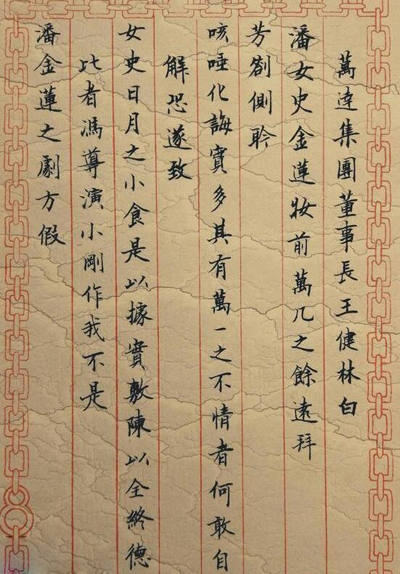 萬達集團董事長王健林白
潘女史金蓮妝前萬几之餘遠拜
芳劄側聆
咳唾化誨實多其有萬一之不情者何敢自
解恐遂致
女史日月之小食是以據實敷陳以全終德
比者馮導演小剛作我不是
潘金蓮之劇方假